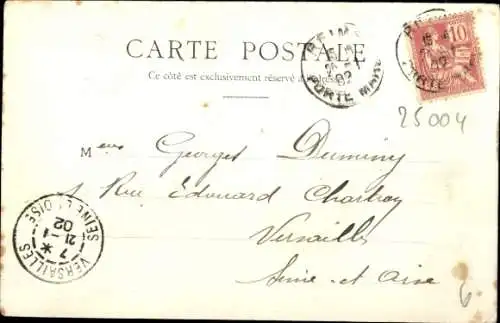 CARTE POSTALE
Ce côté est exclusivement réservé à l'adresse
REIMS
PORTE MARS
02
10
25004
Mme Georges Duminy
1 Rue Edouard Charton
Versailles
Seine-et-Oise
VERSAILLES
SEINE-ET-OISE
7 *
21 - 1
02
6